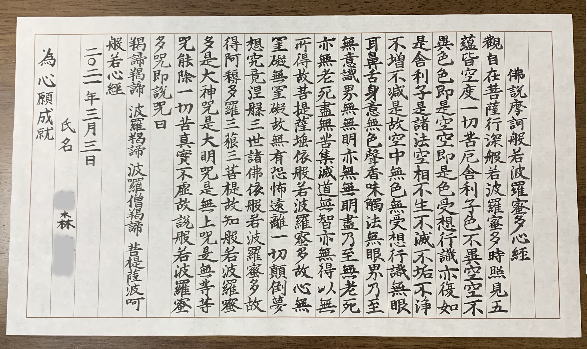 佛説摩訶般若波羅蜜多心経
觀自在菩薩行深般若波羅蜜多時照見五
蘊皆空度一切苦厄舎利子色不異空空不
異色色即是空空即是色受想行識亦復如
是舎利子是諸法空相不生不滅不垢不浄
不増不減是故空中無色無受想行識無眼
耳鼻舌身意無色聲香味觸法無眼界乃至
無意識界無無明亦無無明盡乃至無老死
亦無老死盡無苦集滅道無智亦無得以無
所得故菩提薩埵依般若波羅蜜多故心無
罣礙無罣礙故無有恐怖遠離一切顛倒夢
想究竟涅槃三世諸佛依般若波羅蜜多故
得阿耨多羅三藐三菩提故知般若波羅蜜
多是大神咒是大明咒是無上咒是無等等
咒能除一切苦真實不虚故説般若波羅蜜
多咒即説咒曰
羯諦羯諦 波羅羯諦 波羅僧羯諦 菩提薩婆呵
般若心経
二〇二一年三月三日
氏名 森
為心願成就